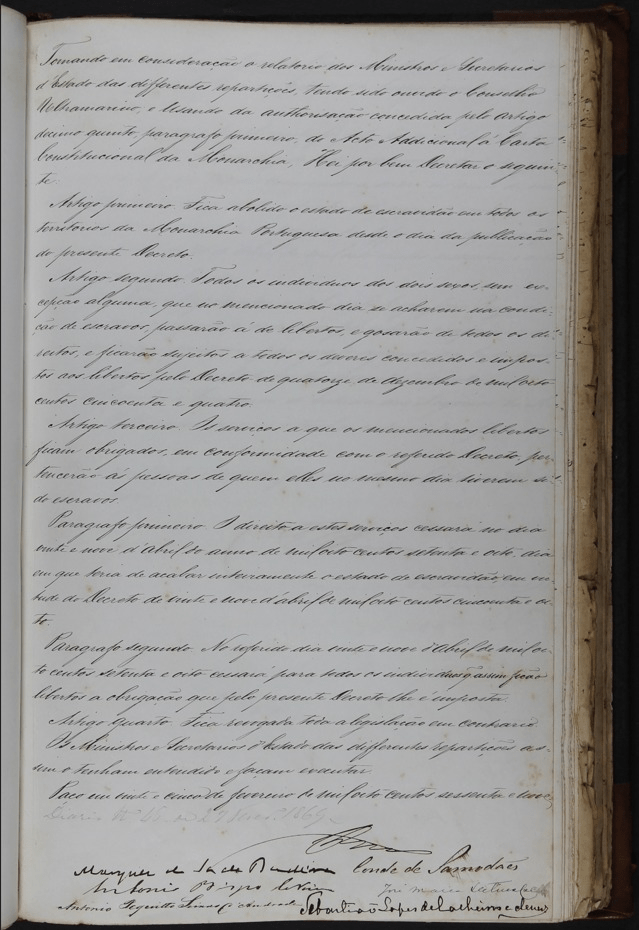 Tomando em consideração o relatorio dos Ministros e Secretarios
d'Estado das differentes repartições, tendo sido ouvido o Conselho
Ultramarino, e Usando da authorisação concedida pelo artigo
decimo quinto, paragrafo primeiro, do Acto Addicional á Carta
Constitucional da Monarchia, Hei por bem Decretar o seguin-
te:
Artigo primeiro. Fica abolido o estado de escravidão em todos os
territorios da Monarchia Portugueza desde o dia da publicação
do presente Decreto.
Artigo segundo. Todos os individuos dos dois sexos, sem ex-
cepção alguma, que no mencionado dia se acharem na condi-
ção de escravos, passarão á de libertos, e gosarão de todos os di-
reitos, e ficarão sujeitos a todos os deveres concedidos e impos-
tos aos libertos pelo Decreto de quatorze de dezembro de mil oito
centos cincoenta e quatro.
Artigo terceiro. Os serviços a que os mencionados libertos
ficam obrigados, em conformidade com o referido Decreto, per-
tencerão ás pessoas de quem elles no mesmo dia tiverem si-
do escravos.
Paragrafo primeiro. O direito a estes serviços cessará no dia
vinte e nove d'Abril do anno de mil oito centos setenta e oito, dia
em que teria de acabar inteiramente o estado de escravidão, em vir-
tude do Decreto de vinte e nove d'abril de mil oito centos cincoenta e oi-
to.
Paragrafo segundo. No referido dia vinte e nove d'Abril de mil oi-
to centos setenta e oito cessará para todos os individuos q assim ficão
libertos a obrigação que pelo presente Decreto lhe é imposta.
Artigo quarto. Fica revogada toda a legislação em contrario.
Os Ministros e Secretarios d'Estado das differentes repartições as-
sim o tenham entendido e façam executar.
Paço em vinte e cinco de fevereiro de mil oito centos sessenta e nove
Diario Nº de 27 1869
Marquez de Sá da Bandeira Conde de Samodães
Antonio Bispo de Vizeu José Maria Latino Coelho
Antonio Pequito Seixas d'Andrade Sebastião Lopes de Calheiros e Menezes